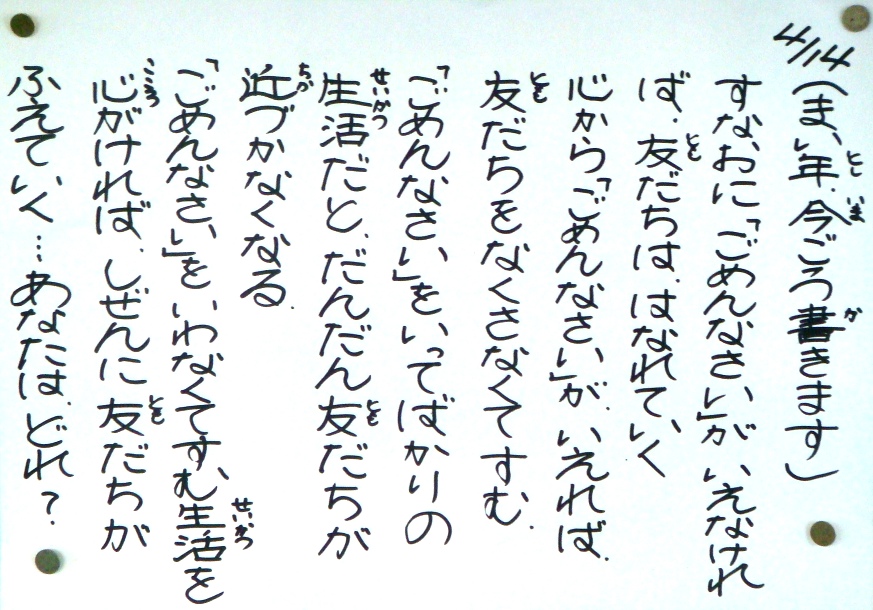 4/14(まい年、今ごろ書きます)
すなおに「ごめんなさい」が いえなけれ
ば、友だちは はなれていく
心から「ごめんなさい」が、いえれば、
友だちをなくさなくてすむ.
「ごめんなさい」をいってばかりの
生活だと、だんだん友だちが
近づかなくなる.
「ごめんなさい」を いわなくてすむ生活を
心がければ、しぜんに友だちが
ふえていく…あなたは、どれ?